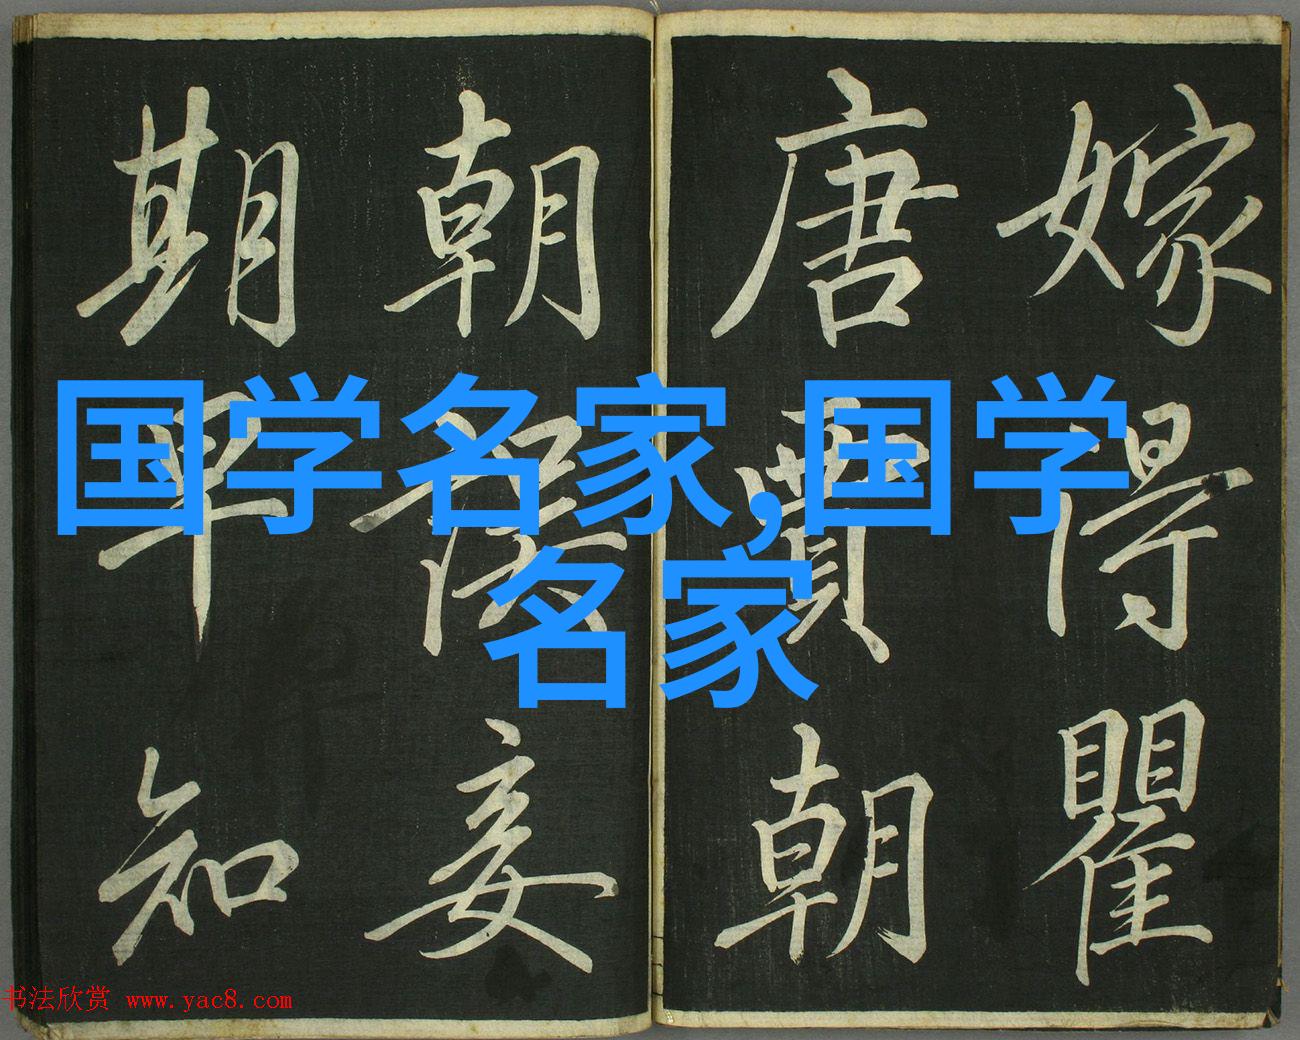 嫁得瞿
唐賈朝
朝誤妾
期早知
国学名家,国学
名家
书法欣赏 www.yac8.com